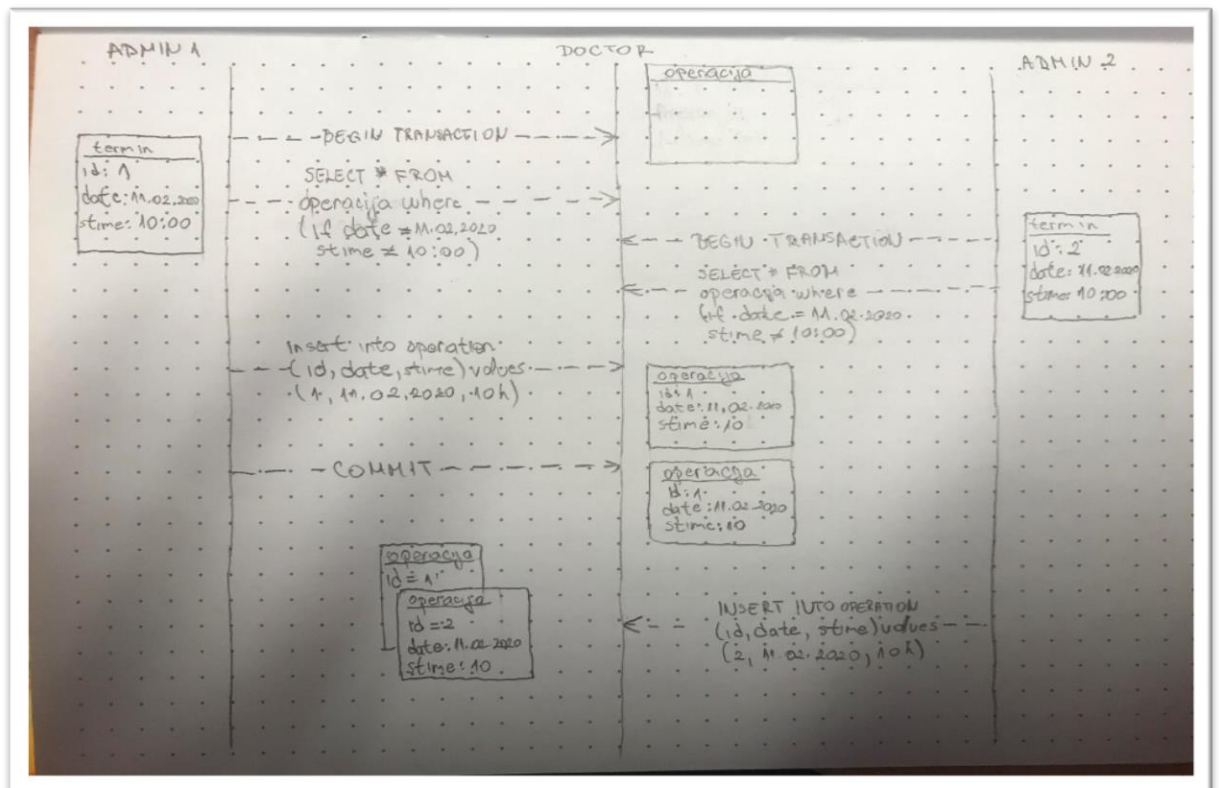 ADMIN 1
DOCTOR
ADMIN 2
operacija
BEGIN TRANSACTION
termin
id: 1
date: 11.02.2020
stime: 10:00
SELECT * FROM
operacija where
(if date ≠ 11.02.2020
stime ≠ 10:00)
BEGIN TRANSACTION
termin
id: 2
date: 11.02.2020
stime: 10:00
SELECT * FROM
operacija where
(if date = 11.02.2020
stime ≠ 10:00)
Insert into operation
(id, date, stime) values
(1, 11.02.2020, 10h)
operacija
id: 1
date: 11.02.2020
stime: 10
COMMIT
operacija
id: 1
date: 11.02.2020
stime: 10
operacija
id = 1
operacija
id = 2
date: 11.02.2020
stime: 10
INSERT INTO OPERATION
(id, date, stime) values
(2, 11.02.2020, 10h)